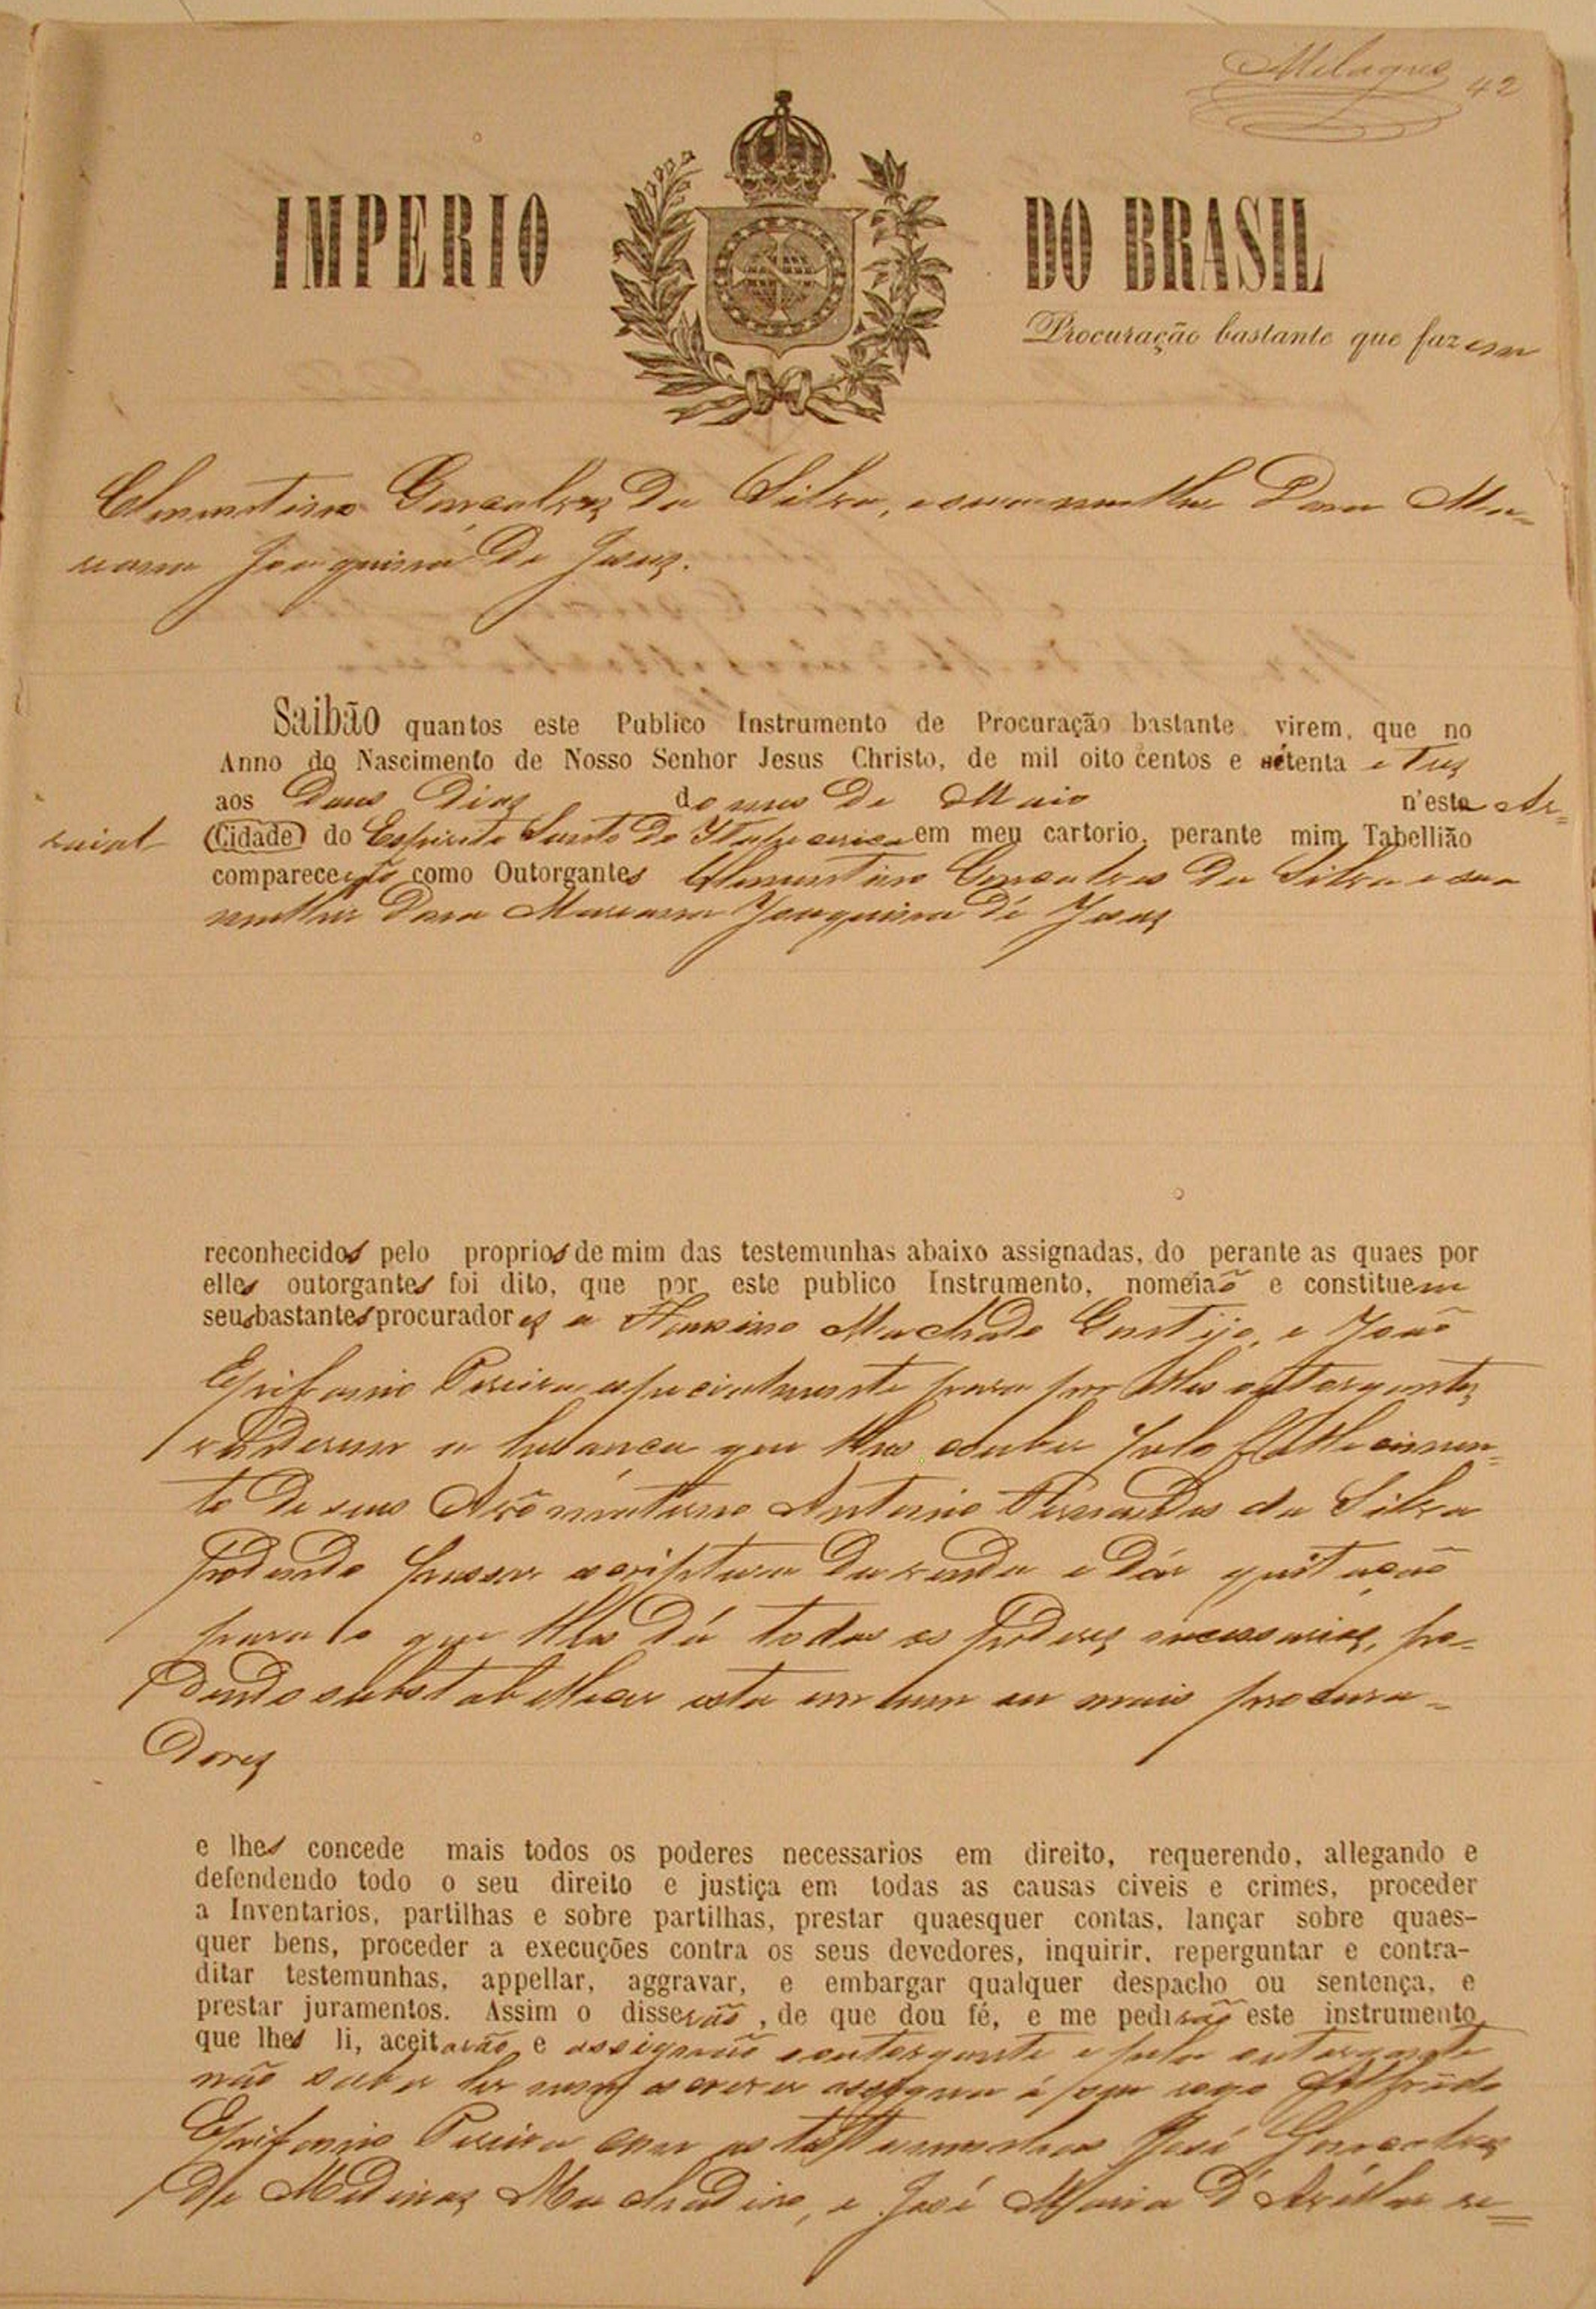 Milagres 42
IMPERIO DO BRASIL
Procuração bastante que fazem
Clementino Gonçalves da Silva, e sua mulher Dona Ma-
rianna Joaquina de Jesus.
Saibão quantos este Publico Instrumento de Procuração bastante virem, que no
Anno do Nascimento de Nosso Senhor Jesus Christo, de mil oito centos e setenta e tres
aos dous dias do mes de Maio n'esta Ar=
raial (Cidade) do Espirito Santo de Itapecerica em meu cartorio, perante mim Tabellião
comparecerão como Outorgantes Clementino Gonçalves da Silva e sua
mulher Dona Marianna Joaquina de Jesus
reconhecidos pelo proprios de mim das testemunhas abaixo assignadas, do perante as quaes por
elles outorgantes foi dito, que por este publico Instrumento, nomeiaõ e constituem
seus bastantes procuradores a Machado e João
Epifanio Pereira especialmente para por elles outorgantes
venderem a herança que lhes coube pelo fallecimen=
to de seus Avô materno Antonio Fernandes da Silva
podendo passar escriptura da venda e dár quitação
para o que lhes dá todos os poderes necessarios, po-
dendo substabellecer esta em hum ou mais procura-
dores
e lhes concede mais todos os poderes necessarios em direito, requerendo, allegando e
defendendo todo o seu direito e justiça em todas as causas civeis e crimes, proceder
a Inventarios, partilhas e sobre partilhas, prestar quaesquer contas, lançar sobre quaes-
quer bens, proceder a execuções contra os seus devedores, inquirir, reperguntar e contra-
ditar testemunhas, appellar, aggravar, e embargar qualquer despacho ou sentença, e
prestar juramentos. Assim o disserão, de que dou fé, e me pedirão este instrumento
que lhes li, aceitarão e assignarão o outorgante e pela outorgante
não saber ler nem escrever assigna á seu rogo
Epifanio Pereira com as testemunhas José Gonçalves
de Machadino, e José Maria d'Avilla re=